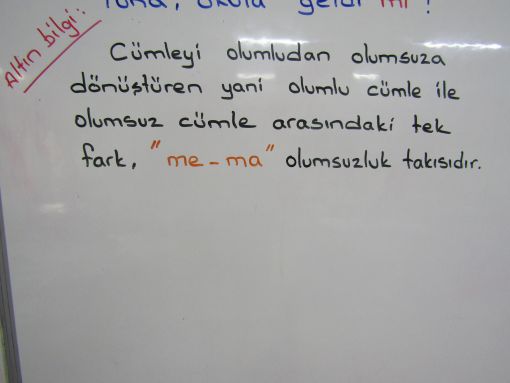 Tuna, okula geldi mi?
Altın bilgi:
Cümleyi olumludan olumsuza
dönüştüren yani olumlu cümle ile
olumsuz cümle arasındaki tek
fark, "me-ma" olumsuzluk takısıdır.